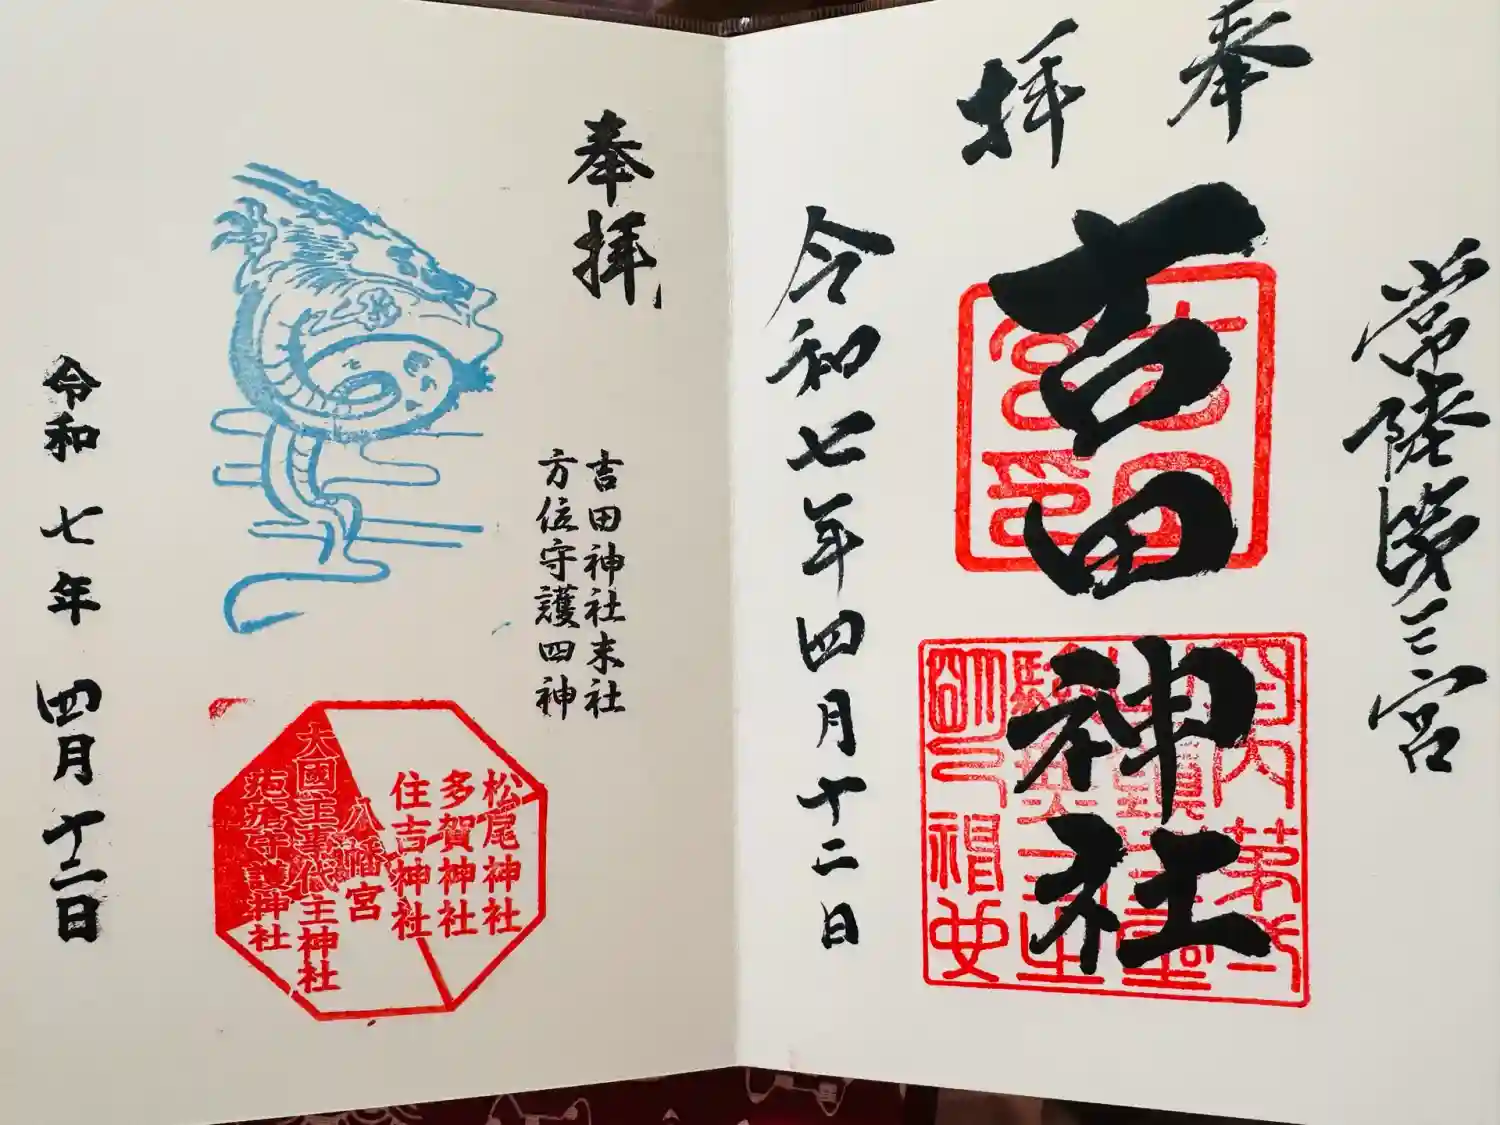 奉拝
常陸第三宮
吉田神社
令和七年四月十二日
奉拝
吉田神社末社
方位守護四神
松尾神社
多賀神社
住吉神社
八幡宮
大國主事代主神社
疱瘡守護神社
令和七年四月十二日